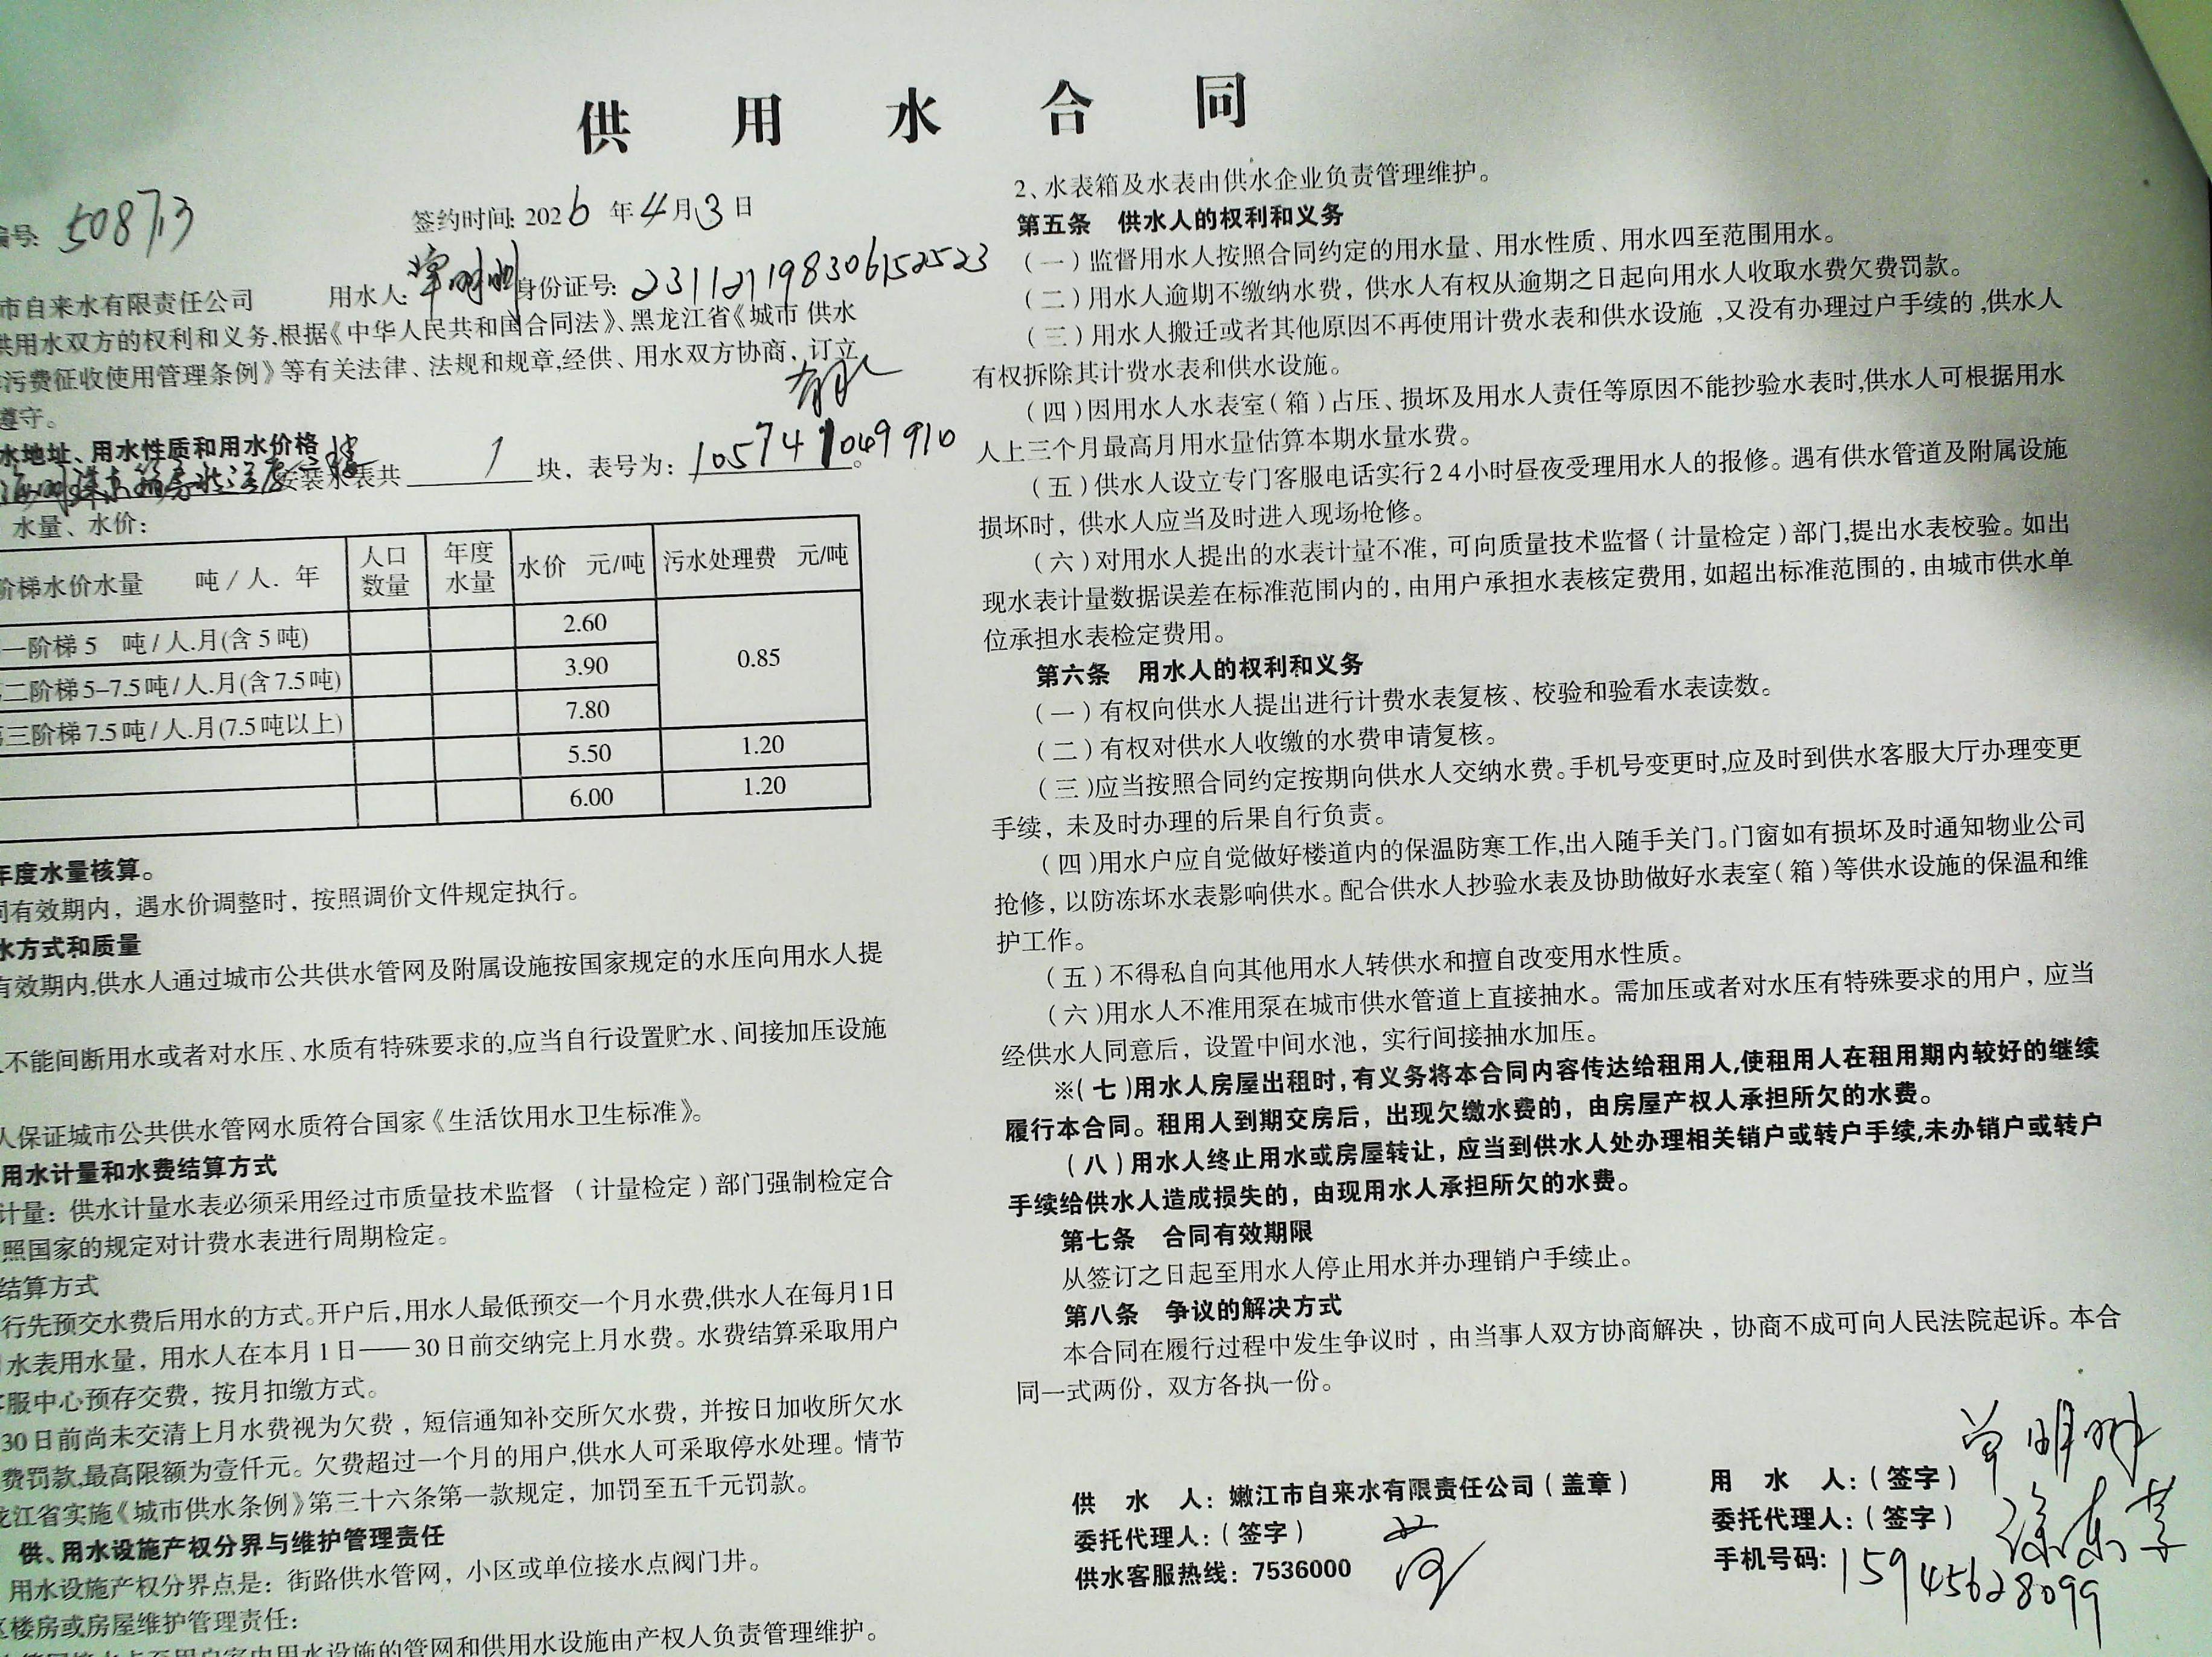 供用水合同
编号: 508713
签约时间: 2026年4月3日
市自来水有限责任公司 用水人: 单明明 身份证号: 231121198306152523
供用水双方的权利和义务,根据《中华人民共和国合同法》、黑龙江省《城市 供水
污费征收使用管理条例》等有关法律、法规和规章,经供、用水双方协商, 订立
遵守。
水地址、用水性质和用水价格
安装水表共 1 块, 表号为: 105741049910。
水量、水价:
阶梯水价水量 吨/人. 年 人口数量 年度水量 水价 元/吨 污水处理费 元/吨
一阶梯 5 吨/人.月(含 5 吨) 2.60 0.85
二阶梯 5-7.5吨/人.月(含 7.5吨) 3.90
三阶梯 7.5吨/人.月(7.5吨以上) 7.80
5.50 1.20
6.00 1.20
年度水量核算。
同有效期内, 遇水价调整时, 按照调价文件规定执行。
水方式和质量
有效期内,供水人通过城市公共供水管网及附属设施按国家规定的水压向用水人提
不能间断用水或者对水压、水质有特殊要求的,应当自行设置贮水、间接加压设施
人保证城市公共供水管网水质符合国家《生活饮用水卫生标准》。
用水计量和水费结算方式
计量: 供水计量水表必须采用经过市质量技术监督 (计量检定)部门强制检定合
照国家的规定对计费水表进行周期检定。
结算方式
行先预交水费后用水的方式。开户后,用水人最低预交一个月水费,供水人在每月1日
水表用水量, 用水人在本月 1 日——30日前交纳完上月水费。水费结算采取用户
客服中心预存交费, 按月扣缴方式。
30日前尚未交清上月水费视为欠费, 短信通知补交所欠水费, 并按日加收所欠水
费罚款,最高限额为壹仟元。欠费超过一个月的用户,供水人可采取停水处理。情节
龙江省实施《城市供水条例》第三十六条第一款规定, 加罚至五千元罚款。
供、用水设施产权分界与维护管理责任
用水设施产权分界点是: 街路供水管网, 小区或单位接水点阀门井。
区楼房或房屋维护管理责任:
用水设施的管网和供用水设施由产权人负责管理维护。
2、水表箱及水表由供水企业负责管理维护。
第五条 供水人的权利和义务
(一)监督用水人按照合同约定的用水量、用水性质、用水四至范围用水。
(二)用水人逾期不缴纳水费, 供水人有权从逾期之日起向用水人收取水费欠费罚款。
(三)用水人搬迁或者其他原因不再使用计费水表和供水设施 ,又没有办理过户手续的,供水人
有权拆除其计费水表和供水设施。
(四)因用水人水表室(箱)占压、损坏及用水人责任等原因不能抄验水表时,供水人可根据用水
人上三个月最高月用水量估算本期水量水费。
(五)供水人设立专门客服电话实行24小时昼夜受理用水人的报修。遇有供水管道及附属设施
损坏时, 供水人应当及时进入现场抢修。
(六)对用水人提出的水表计量不准, 可向质量技术监督(计量检定)部门,提出水表校验。如出
现水表计量数据误差在标准范围内的, 由用户承担水表核定费用, 如超出标准范围的, 由城市供水单
位承担水表检定费用。
第六条 用水人的权利和义务
(一)有权向供水人提出进行计费水表复核、校验和验看水表读数。
(二)有权对供水人收缴的水费申请复核。
(三)应当按照合同约定按期向供水人交纳水费。手机号变更时,应及时到供水客服大厅办理变更
手续, 未及时办理的后果自行负责。
(四)用水户应自觉做好楼道内的保温防寒工作,出入随手关门。门窗如有损坏及时通知物业公司
抢修, 以防冻坏水表影响供水。配合供水人抄验水表及协助做好水表室(箱)等供水设施的保温和维
护工作。
(五)不得私自向其他用水人转供水和擅自改变用水性质。
(六)用水人不准用泵在城市供水管道上直接抽水。需加压或者对水压有特殊要求的用户, 应当
经供水人同意后, 设置中间水池, 实行间接抽水加压。
※(七)用水人房屋出租时, 有义务将本合同内容传达给租用人,使租用人在租用期内较好的继续
履行本合同。租用人到期交房后, 出现欠缴水费的, 由房屋产权人承担所欠的水费。
(八)用水人终止用水或房屋转让, 应当到供水人处办理相关销户或转户手续,未办销户或转户
手续给供水人造成损失的, 由现用水人承担所欠的水费。
第七条 合同有效期限
从签订之日起至用水人停止用水并办理销户手续止。
第八条 争议的解决方式
本合同在履行过程中发生争议时, 由当事人双方协商解决, 协商不成可向人民法院起诉。本合
同一式两份, 双方各执一份。
供 水 人: 嫩江市自来水有限责任公司(盖章)
委托代理人:(签字)
供水客服热线: 7536000
用 水 人:(签字) 单明明
委托代理人:(签字)
手机号码: 15945628099